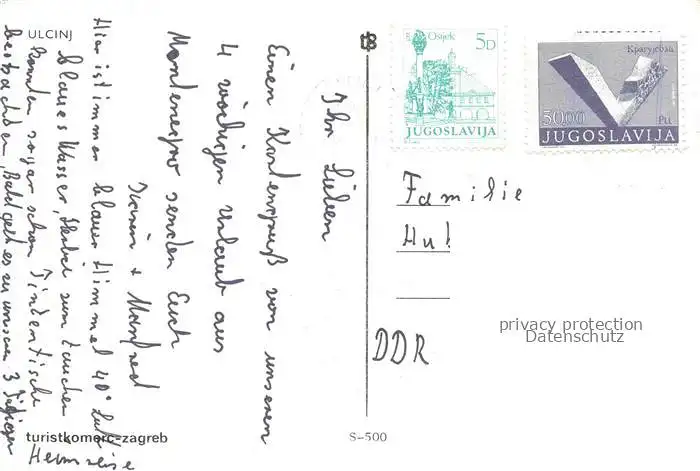 ULCINJ
Ihr Lieben
Einen Kartengruß von unserem
4 wöchigen Urlaub aus
Montenegro senden Euch
+ Manfred
Hier ist immer blauer Himmel 40° Luft
blaues Wasser, zum tauchen
konnten sogar schon Tintenfische
beobachten, Bald geht es zu unserer 3 Tägigen
Heimreise
turistkomerc-zagreb
S-500
Osijek
5D
JUGOSLAVIJA
Крагујевац
50.00
JUGOSLAVIJA
Familie
Hul
DDR
privacy protection
Datenschutz